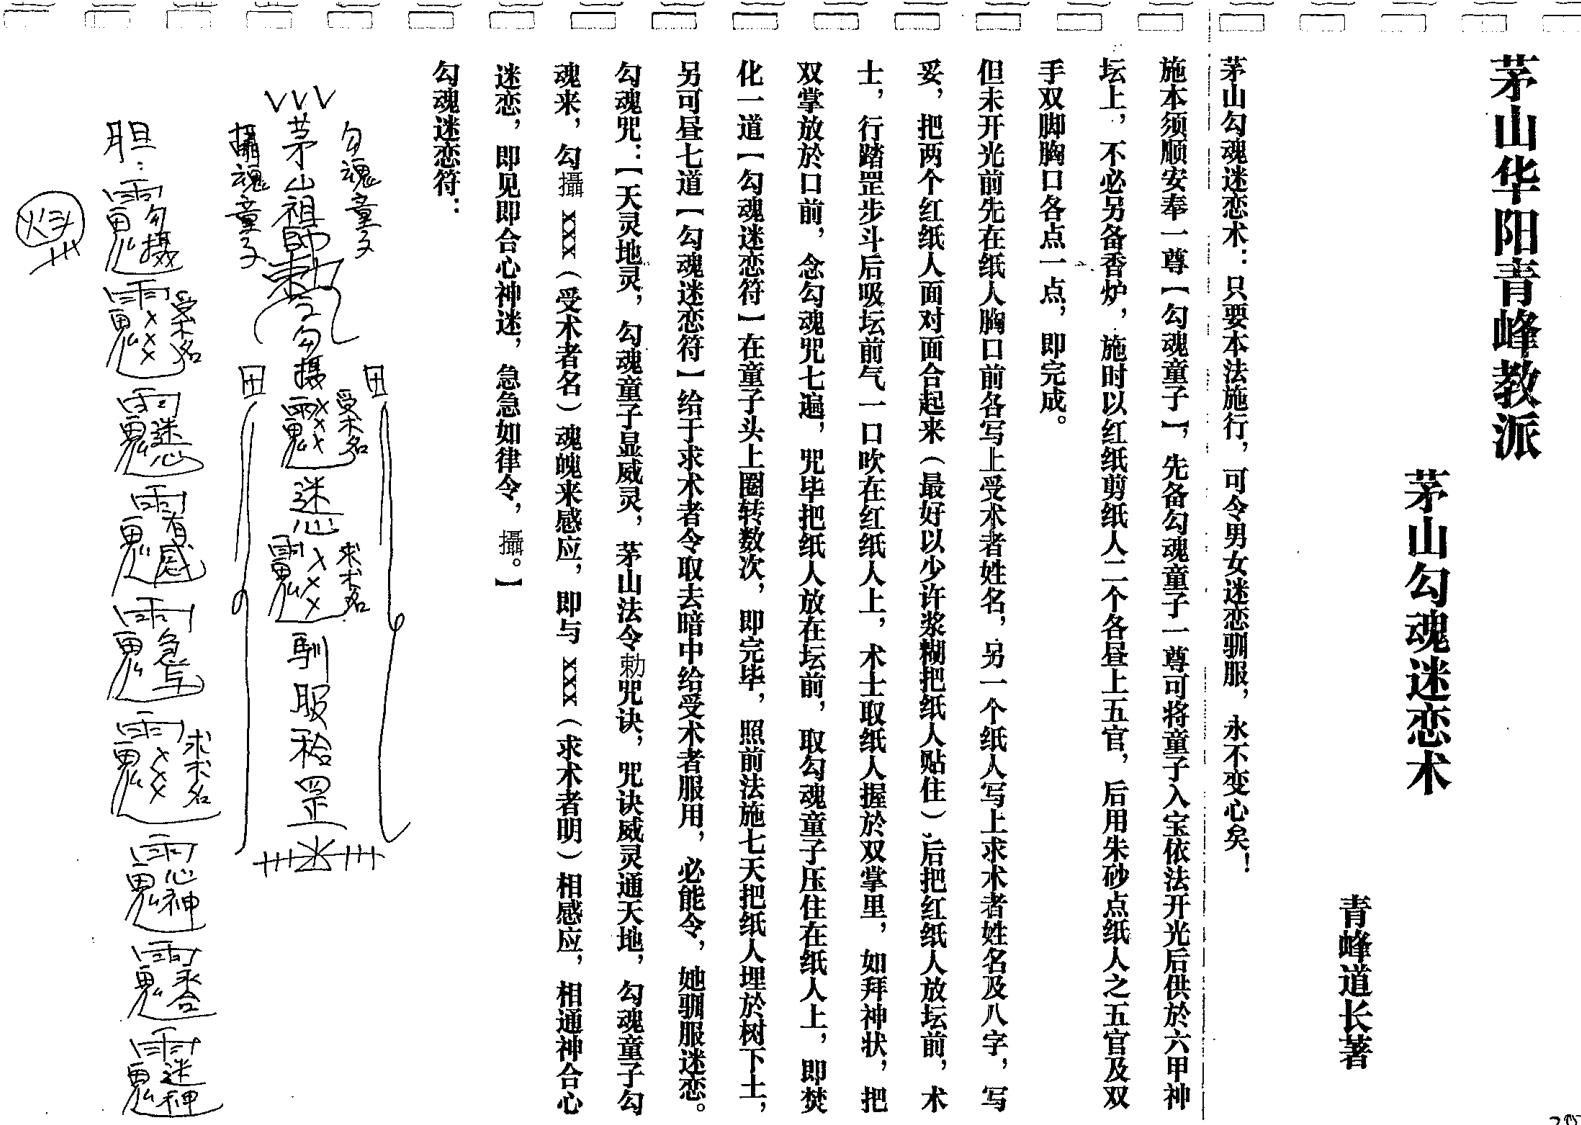 茅山华阳青峰教派
茅山勾魂迷恋术
青峰道长著
茅山勾魂迷恋术：只要本法施行，可令男女迷恋驯服，永不变心矣！
施本须顺安奉一尊【勾魂童子】，先备勾魂童子一尊可将童子入宝依法开光后供於六甲神
坛上，不必另备香炉，施时以红纸剪纸人二个各昼上五官，后用朱砂点纸人之五官及双
手双脚胸口各点一点，即完成。
但未开光前先在纸人胸口前各写上受术者姓名，另一个纸人写上求术者姓名及八字，写
妥，把两个红纸人面对面合起来（最好以少许浆糊把纸人贴住）、后把红纸人放坛前，术
士，行踏罡步斗后吸坛前气一口吹在红纸人上，术士取纸人握於双掌里，如拜神状，把
双掌放於口前，念勾魂咒七遍，咒毕把纸人放在坛前，取勾魂童子压住在纸人上，即焚
化一道【勾魂迷恋符】在童子头上圈转数次，即完毕，照前法施七天把纸人埋於树下土，
另可昼七道【勾魂迷恋符】给于求术者令取去暗中给受术者服用，必能令，她驯服迷恋。
勾魂咒：【天灵地灵，勾魂童子显威灵，茅山法令勅咒诀，咒诀威灵通天地，勾魂童子勾
魂来，勾攝XXX（受术者名）魂魄来感应，即与XXX（求术者明）相感应，相通神合心
迷恋，即见即合心神迷，急急如律令，攝。】
勾魂迷恋符：
勾魂童子
茅山祖師勅令勾攝XXX迷心XXX馴服
受术名
求术名
罡
攝魂童子
胆：
勾攝
XXX受术名
迷心
有感
XXX求术名
心神
迷神